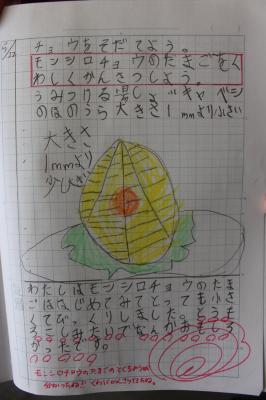 5/12
チョウをそだてよう。
モンシロチョウのたまごをく
わしくかんさつしよう。
うみつける場しょ キャベツ
のはのうら 大きさ1mmより小さい
大きさ
1mmより
少し大きい
わたしはモンシロチョウのたま
ごははじめてみてとっても小さ
くてびっくりしました。とうも
ろこしみたいでなんかおもしろ
かったです。
モンシロチョウのたまごのとくちょうが
分かったね。くわしくかんさつできたね。